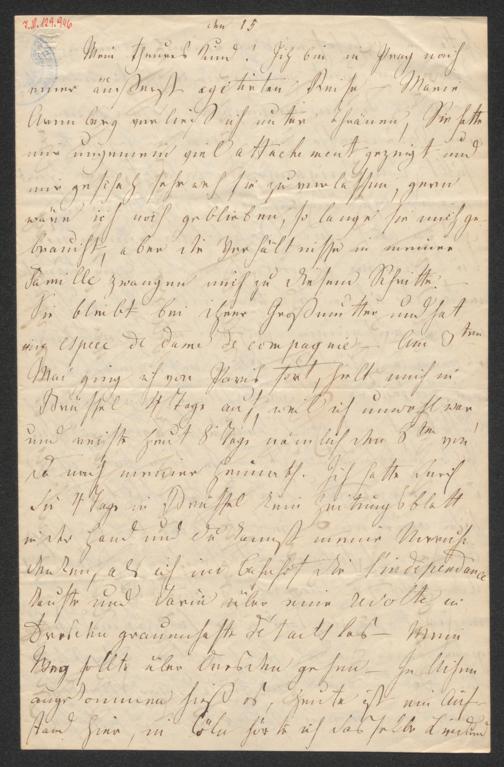 7.N.129.946
den 15
Mein theures Kind! Ich bin in Prag nach
einer äußerst agitirten Reise – Marie
Aremberg verließ ich unter Thränen, Sie hatte
mir ungemein viel attachement gezeigt und
mir geschah sehr weh sie zu verlassen, gern
wäre ich noch geblieben, so lange sie mich ge
braucht, aber die Verhältnisse in meiner
Familie zwangen mich zu diesem Schritte. –
Sie bleibt bei ihrer Großmutter und hat
eine espece de dame de compagnie – Am 3ten
Mai ging ich von Paris fort, hielt mich in
Brüssel 4 Tage auf, weil ich unwohl war,
und reiste heut 8 Tage nämlich den 8ten von
da nach meiner Heimath. Ich hatte durch
die 4 Tage in Brüssel kein Zeitungsblatt
in der Hand und du kannst meine Unruh
denken, als ich im Bahnhof die l'independance
kaufte und darin über eine revolte in
Dresden grauenhafte détails las – Mein
Weg sollte über Dresden gehen – In Achen
angekommen hieß es, heute ist ein Auf-
stand hier, in Cöln hörte ich dasselbe Lied und